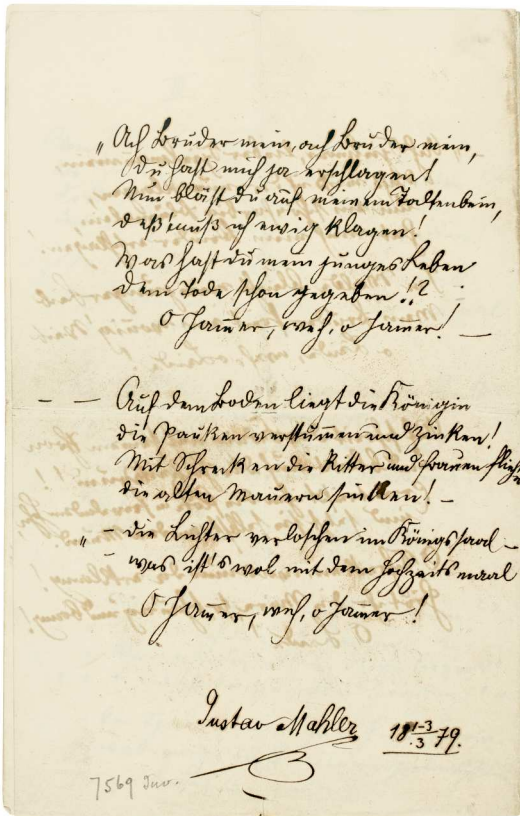 „Ach Bruder mein, ach Bruder mein,
du hast mich ja erschlagen!
Nun bläst du auf meinem Todtenbein,
deß' muß ich ewig klagen!
Was hast du mein junges Leben
dem Tode schon gegeben!?
O Jam̄er, weh, o Jam̄er! —
— — Auf dem Boden liegt die Königin
die Pauken verstummen und Zinken!
Mit Schrecken die Ritter und Frauen fliehn
die alten Mauern sinken! —
„— die Lichter verloschen im Königssaal —
was ist's wol mit dem Hochzeitsmaal
O Jam̄er, weh, o Jam̄er!
Gustav Mahler 18 1-3/3 79.
7569 Inv.